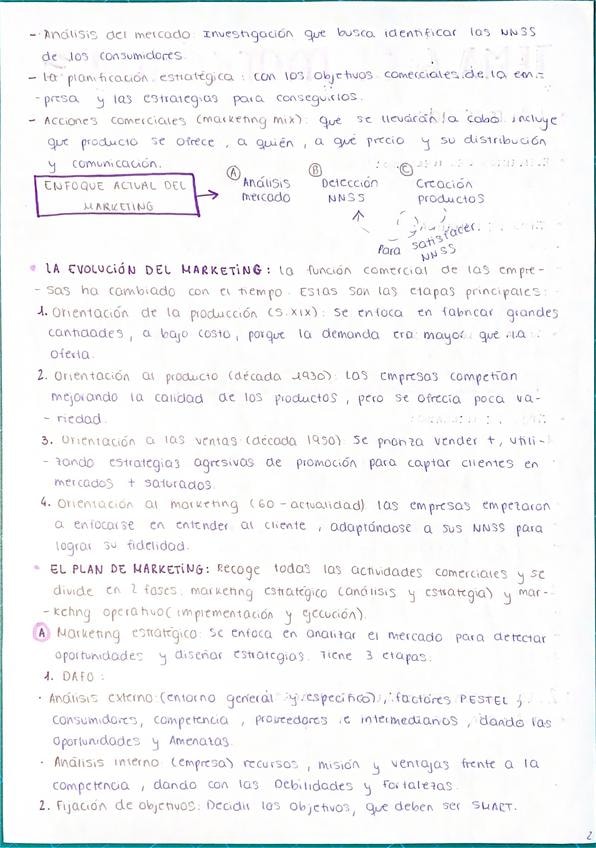 - Análisis del mercado: Investigación que busca identificar las NNSS
de los consumidores.
- La planificación estratégica: con los objetivos comerciales de la em-
-presa y las estrategias para conseguirlos.
- Acciones comerciales (marketing mix): que se llevarán la cabo. incluye
que producto se ofrece, a quién, a qué precio y su distribución
y comunicación.
ENFOQUE ACTUAL DEL
MARKETING
A Análisis
mercado
B Detección
NNSS
C Creación
productos
Para satisfacer.
NNSS
• LA EVOLUCIÓN DEL MARKETING: la función comercial de las empre-
- sas ha cambiado con el tiempo. Estas son las etapas principales:
1. Orientación de la producción (S.XIX): Se enfoca en fabricar grandes
cantidades, a bajo costo, porque la demanda era mayor que la
oferta.
2. Orientación al producto (década 1930): las empresas competían
mejorando la calidad de los productos, pero se ofrecía poca va-
- riedad.
3. Orientación a las ventas (década 1950) Se prioriza vender +, utili-
- zando estrategias agresivas de promoción para captar clientes en
mercados + saturados.
4. Orientación al marketing (60 - actualidad) las empresas empezaron
a enfocarse en entender al cliente, adaptándose a sus NNSS para
lograr su fidelidad.
• EL PLAN DE MARKETING: Recoge todas las actividades comerciales y se
divide en 2 fases. marketing estratégico (análisis y estrategia) y mar-
- keting operativo (implementación y ejecución).
A Marketing estratégico: Se enfoca en analizar el mercado para detectar
oportunidades y diseñar estrategias. Tiene 3 etapas:
1. DAFO:
· Análisis externo: (entorno general y específico), factores PESTEL y
consumidores, competencia, proveedores e intermediarios, dando las
Oportunidades y Amenazas.
· Análisis interno (empresa) recursos, misión y ventajas frente a la
competencia, dando con las Debilidades y Fortalezas.
2. Fijación de objetivos: Decidir los objetivos, que deben ser SMART.
2